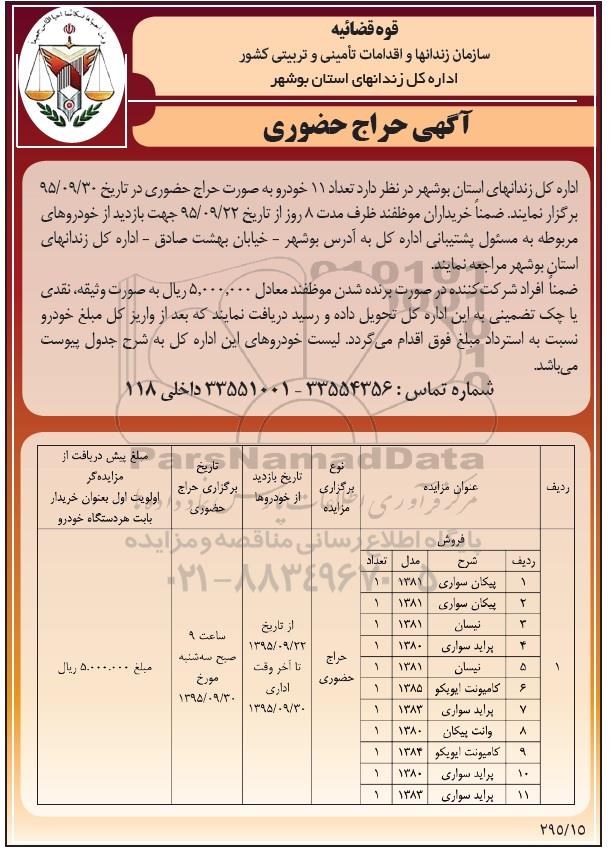 قوه قضائیه
سازمان زندانها و اقدامات تأمینی و تربیتی کشور
اداره کل زندانهای استان بوشهر
آگهی حراج حضوری
اداره کل زندانهای استان بوشهر در نظر دارد تعداد ۱۱ خودرو به صورت حراج حضوری در تاریخ ۹۵/۰۹/۳۰
برگزار نمایند. ضمناً خریداران موظفند ظرف مدت ۸ روز از تاریخ ۹۵/۰۹/۲۲ جهت بازدید از خودروهای
مربوطه به مسئول پشتیبانی اداره کل به آدرس بوشهر - خیابان بهشت صادق - اداره کل زندانهای
استان بوشهر مراجعه نمایند.
ضمناً افراد شرکت‌کننده در صورت برنده شدن موظفند معادل ۵,۰۰۰,۰۰۰ ریال به صورت وثیقه، نقدی
یا چک تضمینی به این اداره کل تحویل داده و رسید دریافت نمایند که بعد از واریز کل مبلغ خودرو
نسبت به استرداد مبلغ فوق اقدام می‌گردد. لیست خودروهای این اداره کل به شرح جدول پیوست
می‌باشد.
شماره تماس : ۳۳۵۵۴۳۵۶ - ۳۳۵۵۱۰۰۱ داخلی ۱۱۸
ParsNamadData
پایگاه اطلاع رسانی مناقصه و مزایده
۰۲۱-۸۸۳۴۹۶۷۰-۵
ردیف
عنوان مزایده
نوع
برگزاری
مزایده
تاریخ بازدید
از خودروها
تاریخ
برگزاری حراج
حضوری
مبلغ پیش دریافت از
مزایده‌گر
اولویت اول بعنوان خریدار
بابت هردستگاه خودرو
۱
فروش
ردیف شرح مدل تعداد
۱ پیکان سواری ۱۳۸۱ ۱
۲ پیکان سواری ۱۳۸۱ ۱
۳ نیسان ۱۳۸۱ ۱
۴ پراید سواری ۱۳۸۰ ۱
۵ نیسان ۱۳۸۱ ۱
۶ کامیونت ایویکو ۱۳۸۵ ۱
۷ پراید سواری ۱۳۸۳ ۱
۸ وانت پیکان ۱۳۸۰ ۱
۹ کامیونت ایویکو ۱۳۸۴ ۱
۱۰ پراید سواری ۱۳۸۰ ۱
۱۱ پراید سواری ۱۳۸۳ ۱
حراج
حضوری
از تاریخ
۱۳۹۵/۰۹/۲۲
تا آخر وقت
اداری
۱۳۹۵/۰۹/۳۰
ساعت ۹
صبح سه‌شنبه
مورخ
۱۳۹۵/۰۹/۳۰
مبلغ ۵.۰۰۰.۰۰۰ ریال
۲۹۵/۱۵